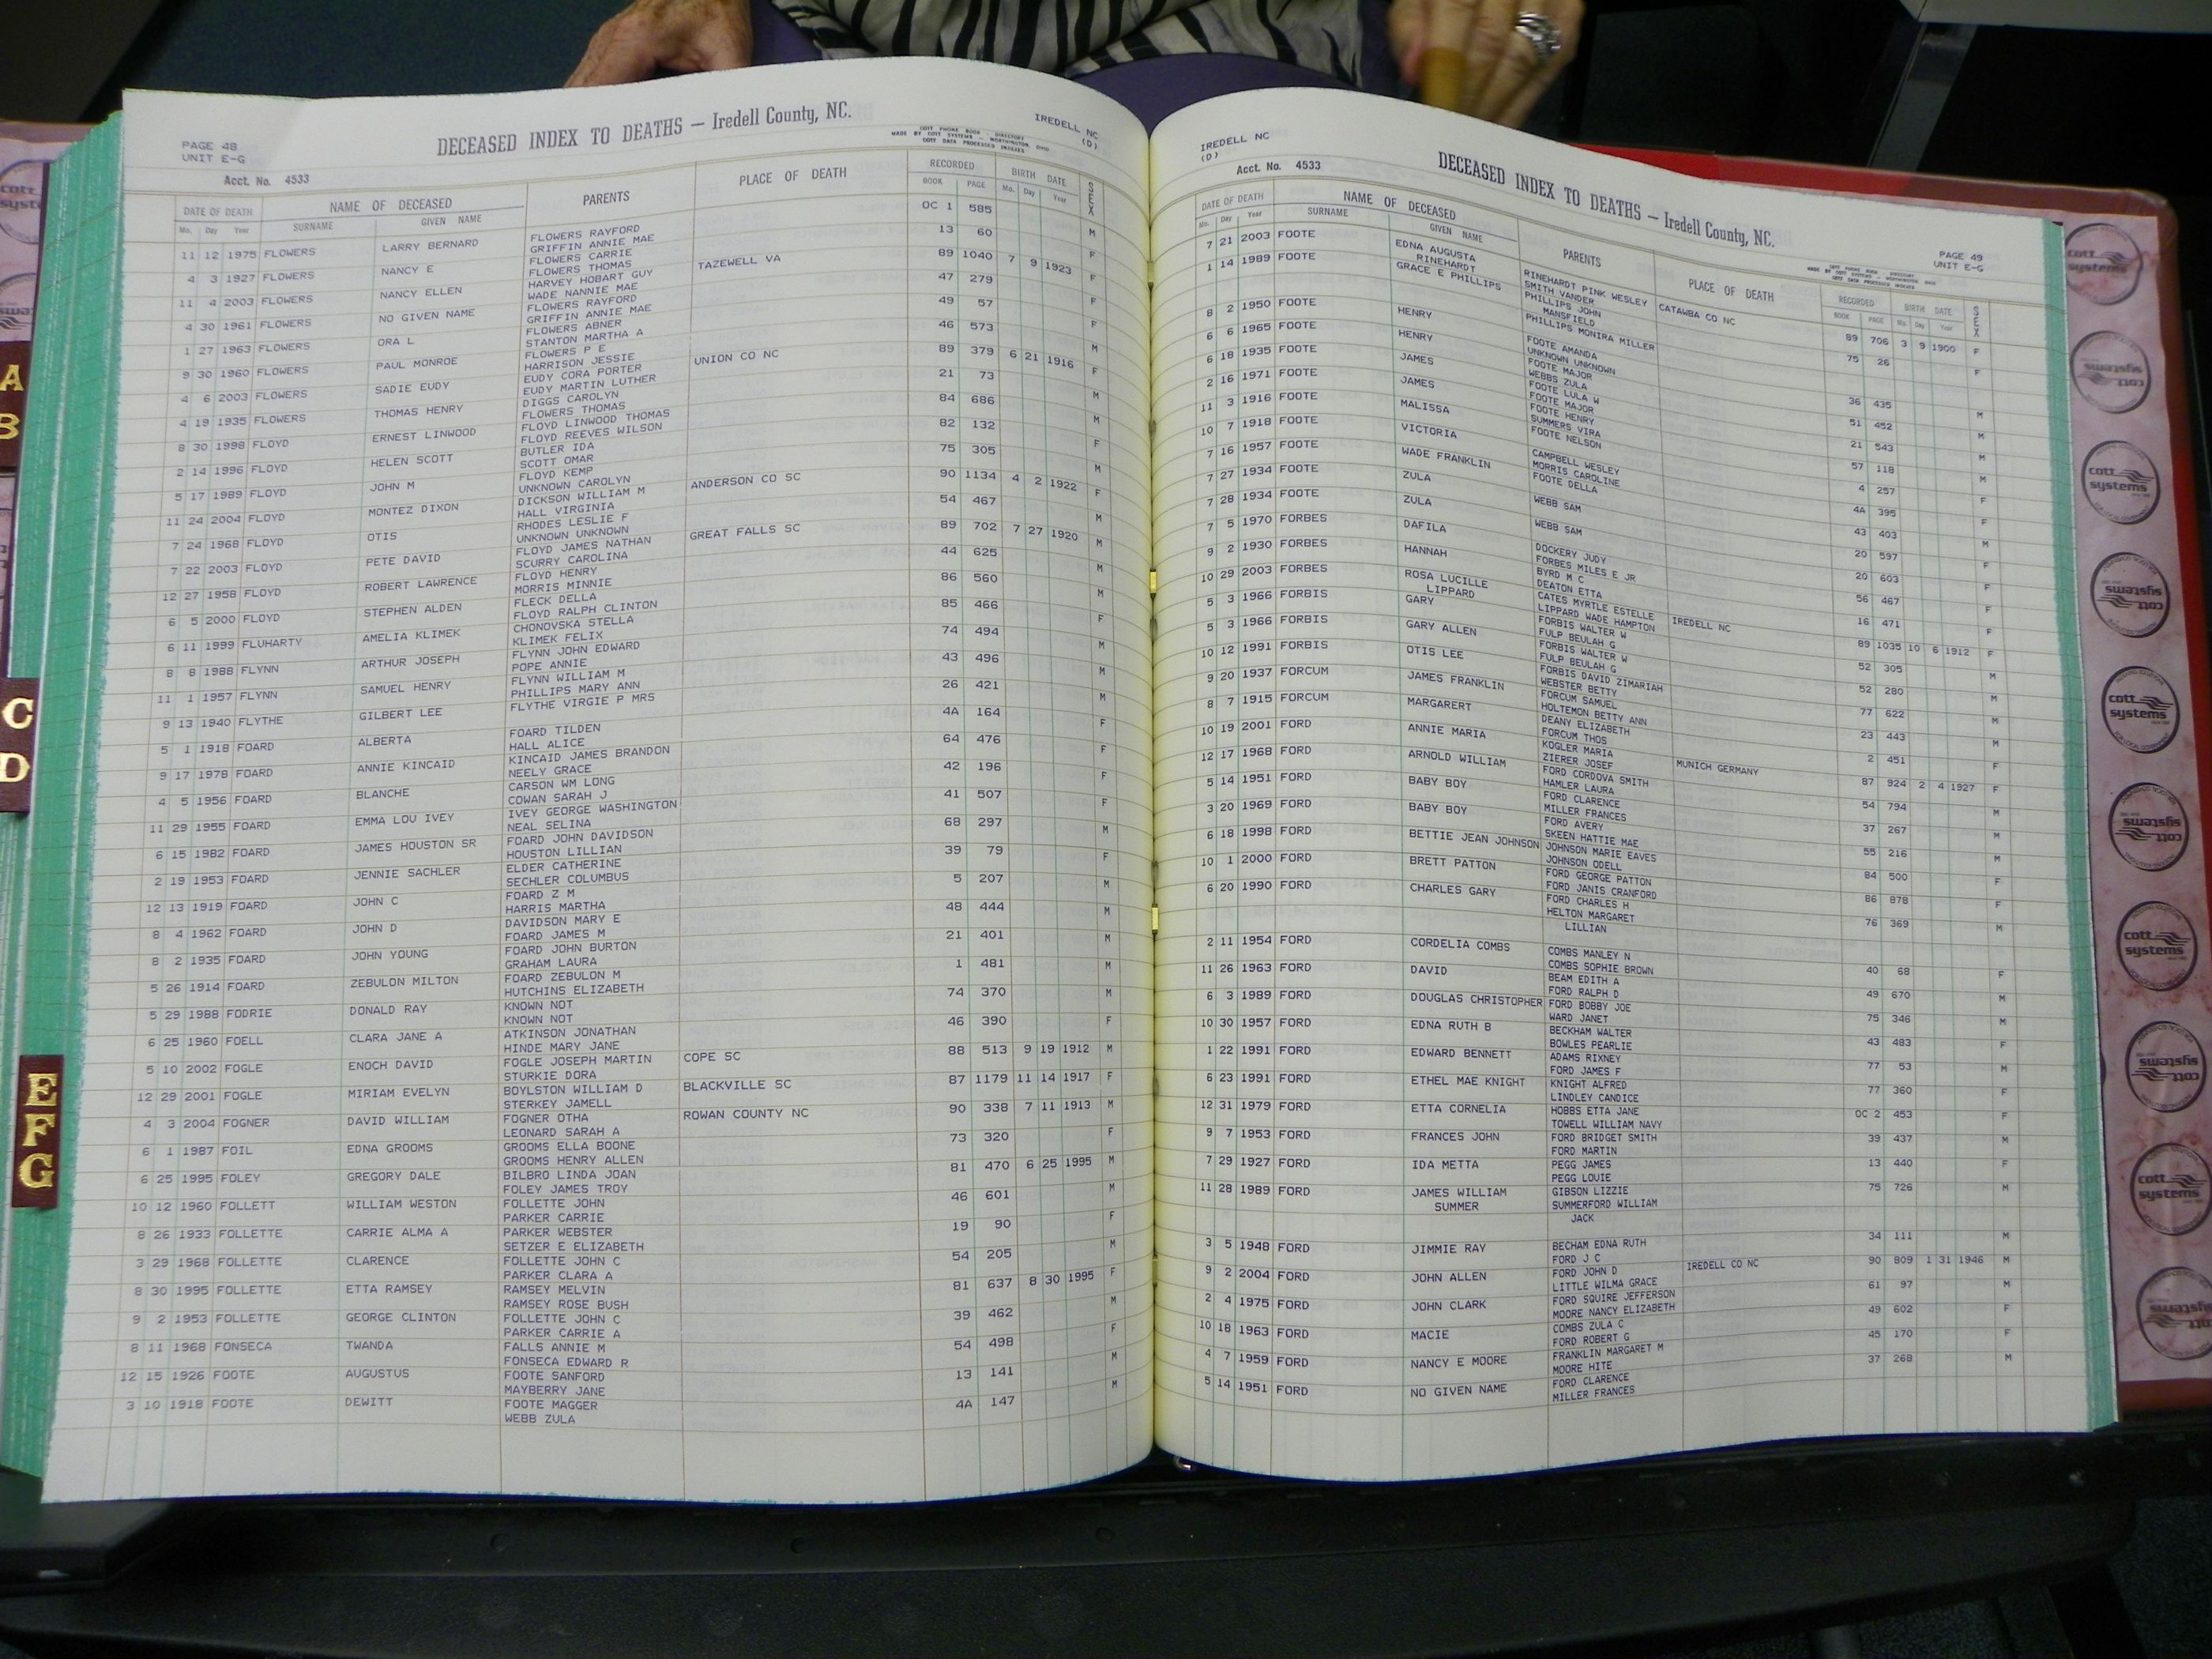 PAGE 48
UNIT E-G
DECEASED INDEX TO DEATHS — Iredell County, NC.
IREDELL NC
(D)
COTT PHONE BOOK - DIRECTORY
MADE BY COTT SYSTEMS - WORTHINGTON, OHIO
COTT DATA PROCESSED INDEXES
Acct. No. 4533
DATE OF DEATH NAME OF DECEASED PARENTS PLACE OF DEATH RECORDED BIRTH DATE SEX
Mo. Day Year SURNAME GIVEN NAME BOOK PAGE Mo. Day Year
11 12 1975 FLOWERS LARRY BERNARD FLOWERS RAYFORD OC 1 585 M
GRIFFIN ANNIE MAE
4 3 1927 FLOWERS NANCY E FLOWERS CARRIE 13 60 F
FLOWERS THOMAS
11 4 2003 FLOWERS NANCY ELLEN HARVEY HOBART GUY TAZEWELL VA 89 1040 7 9 1923 F
WADE NANNIE MAE
4 30 1961 FLOWERS NO GIVEN NAME FLOWERS RAYFORD 47 279 F
GRIFFIN ANNIE MAE
1 27 1963 FLOWERS ORA L FLOWERS ABNER 49 57 F
STANTON MARTHA A
9 30 1960 FLOWERS PAUL MONROE FLOWERS P E 46 573 M
HARRISON JESSIE
4 6 2003 FLOWERS SADIE EUDY EUDY CORA PORTER UNION CO NC 89 379 6 21 1916 F
EUDY MARTIN LUTHER
4 19 1935 FLOWERS THOMAS HENRY DIGGS CAROLYN 21 73 M
FLOWERS THOMAS
8 30 1998 FLOYD ERNEST LINWOOD FLOYD LINWOOD THOMAS 84 686 M
FLOYD REEVES WILSON
2 14 1996 FLOYD HELEN SCOTT BUTLER IDA 82 132 F
SCOTT OMAR
5 17 1989 FLOYD JOHN M FLOYD KEMP 75 305 M
UNKNOWN CAROLYN
11 24 2004 FLOYD MONTEZ DIXON DICKSON WILLIAM M ANDERSON CO SC 90 1134 4 2 1922 F
HALL VIRGINIA
7 24 1968 FLOYD OTIS RHODES LESLIE F 54 467 M
UNKNOWN UNKNOWN
7 22 2003 FLOYD PETE DAVID FLOYD JAMES NATHAN GREAT FALLS SC 89 702 7 27 1920 M
SCURRY CAROLINA
12 27 1958 FLOYD ROBERT LAWRENCE FLOYD HENRY 44 625 M
MORRIS MINNIE
6 5 2000 FLOYD STEPHEN ALDEN FLECK DELLA 86 560 M
FLOYD RALPH CLINTON
6 11 1999 FLUHARTY AMELIA KLIMEK CHONOVSKA STELLA 85 466 F
KLIMEK FELIX
8 8 1988 FLYNN ARTHUR JOSEPH FLYNN JOHN EDWARD 74 494 M
POPE ANNIE
11 1 1957 FLYNN SAMUEL HENRY FLYNN WILLIAM M 43 496 M
PHILLIPS MARY ANN
9 13 1940 FLYTHE GILBERT LEE FLYTHE VIRGIE P MRS 26 421 M
5 1 1918 FOARD ALBERTA FOARD TILDEN 4A 164 F
HALL ALICE
9 17 1978 FOARD ANNIE KINCAID KINCAID JAMES BRANDON 64 476 F
NEELY GRACE
4 5 1956 FOARD BLANCHE CARSON WM LONG 42 196 F
COWAN SARAH J
11 29 1955 FOARD EMMA LOU IVEY IVEY GEORGE WASHINGTON 41 507 F
NEAL SELINA
6 15 1982 FOARD JAMES HOUSTON SR FOARD JOHN DAVIDSON 68 297 M
HOUSTON LILLIAN
2 19 1953 FOARD JENNIE SACHLER ELDER CATHERINE 39 79 F
SECHLER COLUMBUS
12 13 1919 FOARD JOHN C FOARD Z M 5 207 M
HARRIS MARTHA
8 4 1962 FOARD JOHN D DAVIDSON MARY E 48 444 M
FOARD JAMES M
8 2 1935 FOARD JOHN YOUNG FOARD JOHN BURTON 21 401 M
GRAHAM LAURA
5 26 1914 FOARD ZEBULON MILTON FOARD ZEBULON M 1 481 M
HUTCHINS ELIZABETH
5 29 1988 FODRIE DONALD RAY KNOWN NOT 74 370 M
KNOWN NOT
6 25 1960 FOELL CLARA JANE A ATKINSON JONATHAN 46 390 F
HINDE MARY JANE
5 10 2002 FOGLE ENOCH DAVID FOGLE JOSEPH MARTIN COPE SC 88 513 9 19 1912 M
STURKIE DORA
12 29 2001 FOGLE MIRIAM EVELYN BOYLSTON WILLIAM D BLACKVILLE SC 87 1179 11 14 1917 F
STERKEY JAMELL
4 3 2004 FOGNER DAVID WILLIAM FOGNER OTHA ROWAN COUNTY NC 90 338 7 11 1913 M
LEONARD SARAH A
6 1 1987 FOIL EDNA GROOMS GROOMS ELLA BOONE 73 320 F
GROOMS HENRY ALLEN
6 25 1995 FOLEY GREGORY DALE BILBRO LINDA JOAN 81 470 6 25 1995 M
FOLEY JAMES TROY
10 12 1960 FOLLETT WILLIAM WESTON FOLLETTE JOHN 46 601 M
PARKER CARRIE
8 26 1933 FOLLETTE CARRIE ALMA A PARKER WEBSTER 19 90 F
SETZER E ELIZABETH
3 29 1968 FOLLETTE CLARENCE FOLLETTE JOHN C 54 205 M
PARKER CLARA A
8 30 1995 FOLLETTE ETTA RAMSEY RAMSEY MELVIN 81 637 8 30 1995 F
RAMSEY ROSE BUSH
9 2 1953 FOLLETTE GEORGE CLINTON FOLLETTE JOHN C 39 462 M
PARKER CARRIE A
8 11 1968 FONSECA TWANDA FALLS ANNIE M 54 498 F
FONSECA EDWARD R
12 15 1926 FOOTE AUGUSTUS FOOTE SANFORD 13 141 M
MAYBERRY JANE
3 10 1918 FOOTE DEWITT FOOTE MAGGER 4A 147 M
WEBB ZULA
IREDELL NC
(D)
Acct. No. 4533
DECEASED INDEX TO DEATHS — Iredell County, NC.
PAGE 49
UNIT E-G
COTT PHONE BOOK - DIRECTORY
MADE BY COTT SYSTEMS - WORTHINGTON, OHIO
COTT DATA PROCESSED INDEXES
DATE OF DEATH NAME OF DECEASED PARENTS PLACE OF DEATH RECORDED BIRTH DATE SEX
Mo. Day Year SURNAME GIVEN NAME BOOK PAGE Mo. Day Year
7 21 2003 FOOTE EDNA AUGUSTA RINEHARDT PINK WESLEY CATAWBA CO NC 89 706 3 9 1900 F
RINEHARDT SMITH VANDER
1 14 1989 FOOTE GRACE E PHILLIPS PHILLIPS JOHN 75 26 F
MANSFIELD
PHILLIPS MONIRA MILLER
8 2 1950 FOOTE HENRY FOOTE AMANDA 36 435 M
UNKNOWN UNKNOWN
6 6 1965 FOOTE HENRY FOOTE MAJOR 51 452 M
WEBBS ZULA
6 18 1935 FOOTE JAMES FOOTE LULA W 21 543 M
FOOTE MAJOR
2 16 1971 FOOTE JAMES FOOTE HENRY 57 118 M
SUMMERS VIRA
11 3 1916 FOOTE MALISSA FOOTE NELSON 4 257 F
10 7 1918 FOOTE VICTORIA CAMPBELL WESLEY 4A 395 F
MORRIS CAROLINE
7 16 1957 FOOTE WADE FRANKLIN FOOTE DELLA 43 403 M
7 27 1934 FOOTE ZULA WEBB SAM 20 597 F
7 28 1934 FOOTE ZULA WEBB SAM 20 603 F
7 5 1970 FORBES DAFILA DOCKERY JUDY 56 467 F
FORBES MILES E JR
9 2 1930 FORBES HANNAH BYRD M C 16 471 F
DEATON ETTA
10 29 2003 FORBES ROSA LUCILLE CATES MYRTLE ESTELLE IREDELL NC 89 1035 10 6 1912 F
LIPPARD LIPPARD WADE HAMPTON
5 3 1966 FORBIS GARY FORBIS WALTER W 52 305 M
FULP BEULAH G
5 3 1966 FORBIS GARY ALLEN FORBIS WALTER W 52 280 M
FULP BEULAH G
10 12 1991 FORBIS OTIS LEE FORBIS DAVID ZIMARIAH 77 622 M
WEBSTER BETTY
9 20 1937 FORCUM JAMES FRANKLIN FORCUM SAMUEL 23 443 M
HOLTEMON BETTY ANN
8 7 1915 FORCUM MARGARERT DEANY ELIZABETH 2 451 F
FORCUM THOS
10 19 2001 FORD ANNIE MARIA KOGLER MARIA MUNICH GERMANY 87 924 2 4 1927 F
ZIERER JOSEF
12 17 1968 FORD ARNOLD WILLIAM FORD CORDOVA SMITH 54 794 M
HAMLER LAURA
5 14 1951 FORD BABY BOY FORD CLARENCE 37 267 M
MILLER FRANCES
3 20 1969 FORD BABY BOY FORD AVERY 55 216 M
SKEEN HATTIE MAE
6 18 1998 FORD BETTIE JEAN JOHNSON JOHNSON MARIE EAVES 84 500 F
JOHNSON ODELL
10 1 2000 FORD BRETT PATTON FORD GEORGE PATTON 86 878 F
FORD JANIS CRANFORD
6 20 1990 FORD CHARLES GARY FORD CHARLES H 76 369 M
HELTON MARGARET
LILLIAN
2 11 1954 FORD CORDELIA COMBS COMBS MANLEY N 40 68 F
COMBS SOPHIE BROWN
11 26 1963 FORD DAVID BEAM EDITH A 49 670 M
FORD RALPH D
6 3 1989 FORD DOUGLAS CHRISTOPHER FORD BOBBY JOE 75 346 M
WARD JANET
10 30 1957 FORD EDNA RUTH B BECKHAM WALTER 43 483 F
BOWLES PEARLIE
1 22 1991 FORD EDWARD BENNETT ADAMS RIXNEY 77 53 M
FORD JAMES F
6 23 1991 FORD ETHEL MAE KNIGHT KNIGHT ALFRED 77 360 F
LINDLEY CANDICE
12 31 1979 FORD ETTA CORNELIA HOBBS ETTA JANE OC 2 453 F
TOWELL WILLIAM NAVY
9 7 1953 FORD FRANCES JOHN FORD BRIDGET SMITH 39 437 M
FORD MARTIN
7 29 1927 FORD IDA METTA PEGG JAMES 13 440 F
PEGG LOUIE
11 28 1989 FORD JAMES WILLIAM GIBSON LIZZIE 75 726 M
SUMMER SUMMERFORD WILLIAM
JACK
3 5 1948 FORD JIMMIE RAY BECHAM EDNA RUTH 34 111 M
FORD J C
9 2 2004 FORD JOHN ALLEN FORD JOHN D IREDELL CO NC 90 809 1 31 1946 M
LITTLE WILMA GRACE
2 4 1975 FORD JOHN CLARK FORD SQUIRE JEFFERSON 61 97 M
MOORE NANCY ELIZABETH
10 18 1963 FORD MACIE COMBS ZULA C 49 602 F
FORD ROBERT G
4 7 1959 FORD NANCY E MOORE FRANKLIN MARGARET M 45 170 F
MOORE HITE
5 14 1951 FORD NO GIVEN NAME FORD CLARENCE 37 268 M
MILLER FRANCES
A
B
C
D
E
F
G
cott
systems